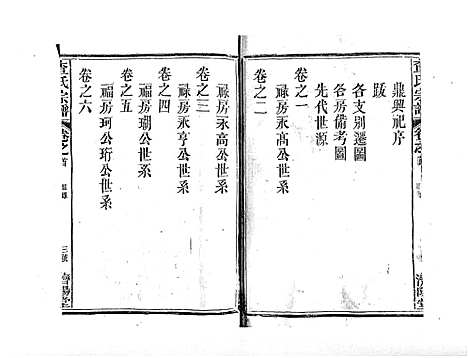 鼎興祀序
跋
各支別遷圖
各房備考圖
先代世源
卷之一
祿房永高公世系
卷之二
卷之三
祿房永高公世系
卷之四
祿房永亨公世系
卷之五
福房珊公世系
卷之六
福房珂公珩公世系
氏宗譜
卷之首
三號
濟陽堂